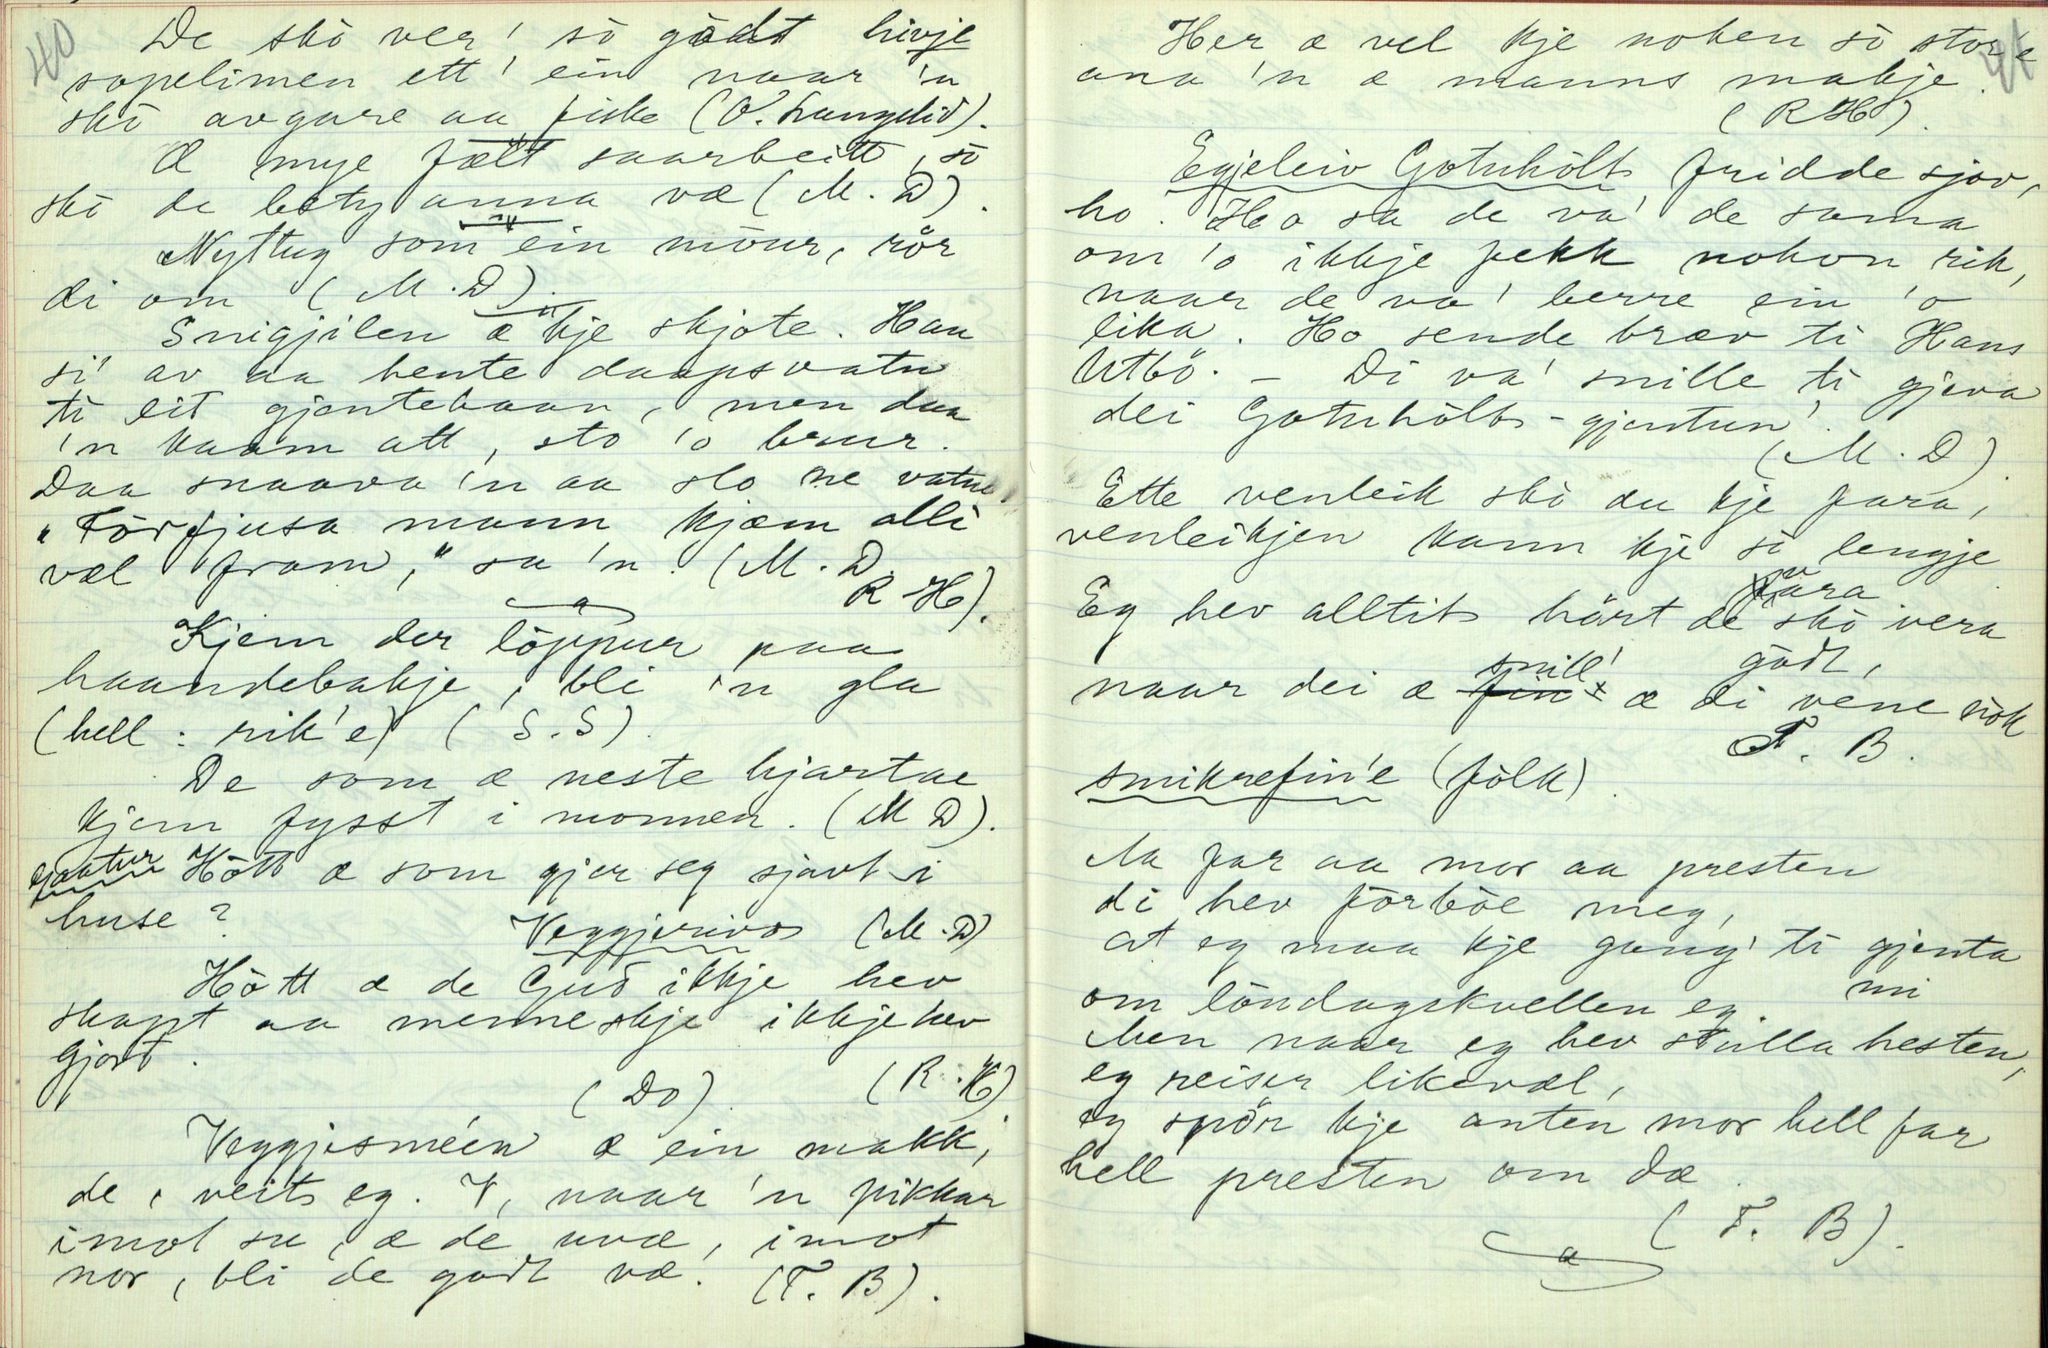 40
De skò ver' sò gòdt hivje
sopelimen ett' ein naar 'n
skò avgare aa fiske (O. Langelid).
Æ mye fælt saarbeitt, sò
skò de bety anna væ (M. D).
Nyttug som ein mòur, rör
di om (M. D).
Snigjilen æ kje skjote. Han
si' av aa hente daapsvatn
ti eit gjentebaan, men daa
'n kaam att, sto 'o brur.
Daa snaava 'n aa slo ne vatne.
"Förfjusa mann kjæm alli
væl fram," sa 'n. (M. D.
R H).
Kjem der löppur paa
haandebakje, bli 'n gla
(hell: rik'e) (S. S).
De som æ neste hjartae
kjem fysst i monnen. (M D).
gaatur Hòtt æ som gjer seg sjavt i
huse?
Veggjerivos (M. D)
Hòtt æ de Gud ikkje hev
skapt aa menneskje ikkje hev
gjort.
(Do) (R. H)
Veggjesméen æ ein makk,
de, veit eg. V, naar 'n pikkar
imot su, æ de uvæ, imot
nor, bli de godt væ. (T. B).
41
Her æ vel kje noken sò store
ana 'n æ manns makje.
(R H).
Egjeleiv Gotuhòlt fridde sjöv,
ho. Ho sa de va' de sama
om 'o ikkje fekk nokon rik,
naar de va' berre ein 'o
lika. Ho sende bræv ti Hans
Utbö. – Di va' snille ti gjeva
dei Gotuhòlts-gjentun'.
(M. D)
Ette venleik skò du kje fara,
venleikjen kann kje sò lengje
vara
Eg hev alltit hört de skò vera
godt,
naar dei æ snill' æ di vene nòk
T. B.
smikrefin'e (fòlk).
Aa far aa mor aa presten
di hev förböe meg,
at eg maa kje gang' ti gjenta
mi
om löndagskvellen eg.
Men naar eg hev stilla hesten,
eg reiser likevæl,
eg spör kje anten mor hell far
hell presten om dæ.
(T. B).